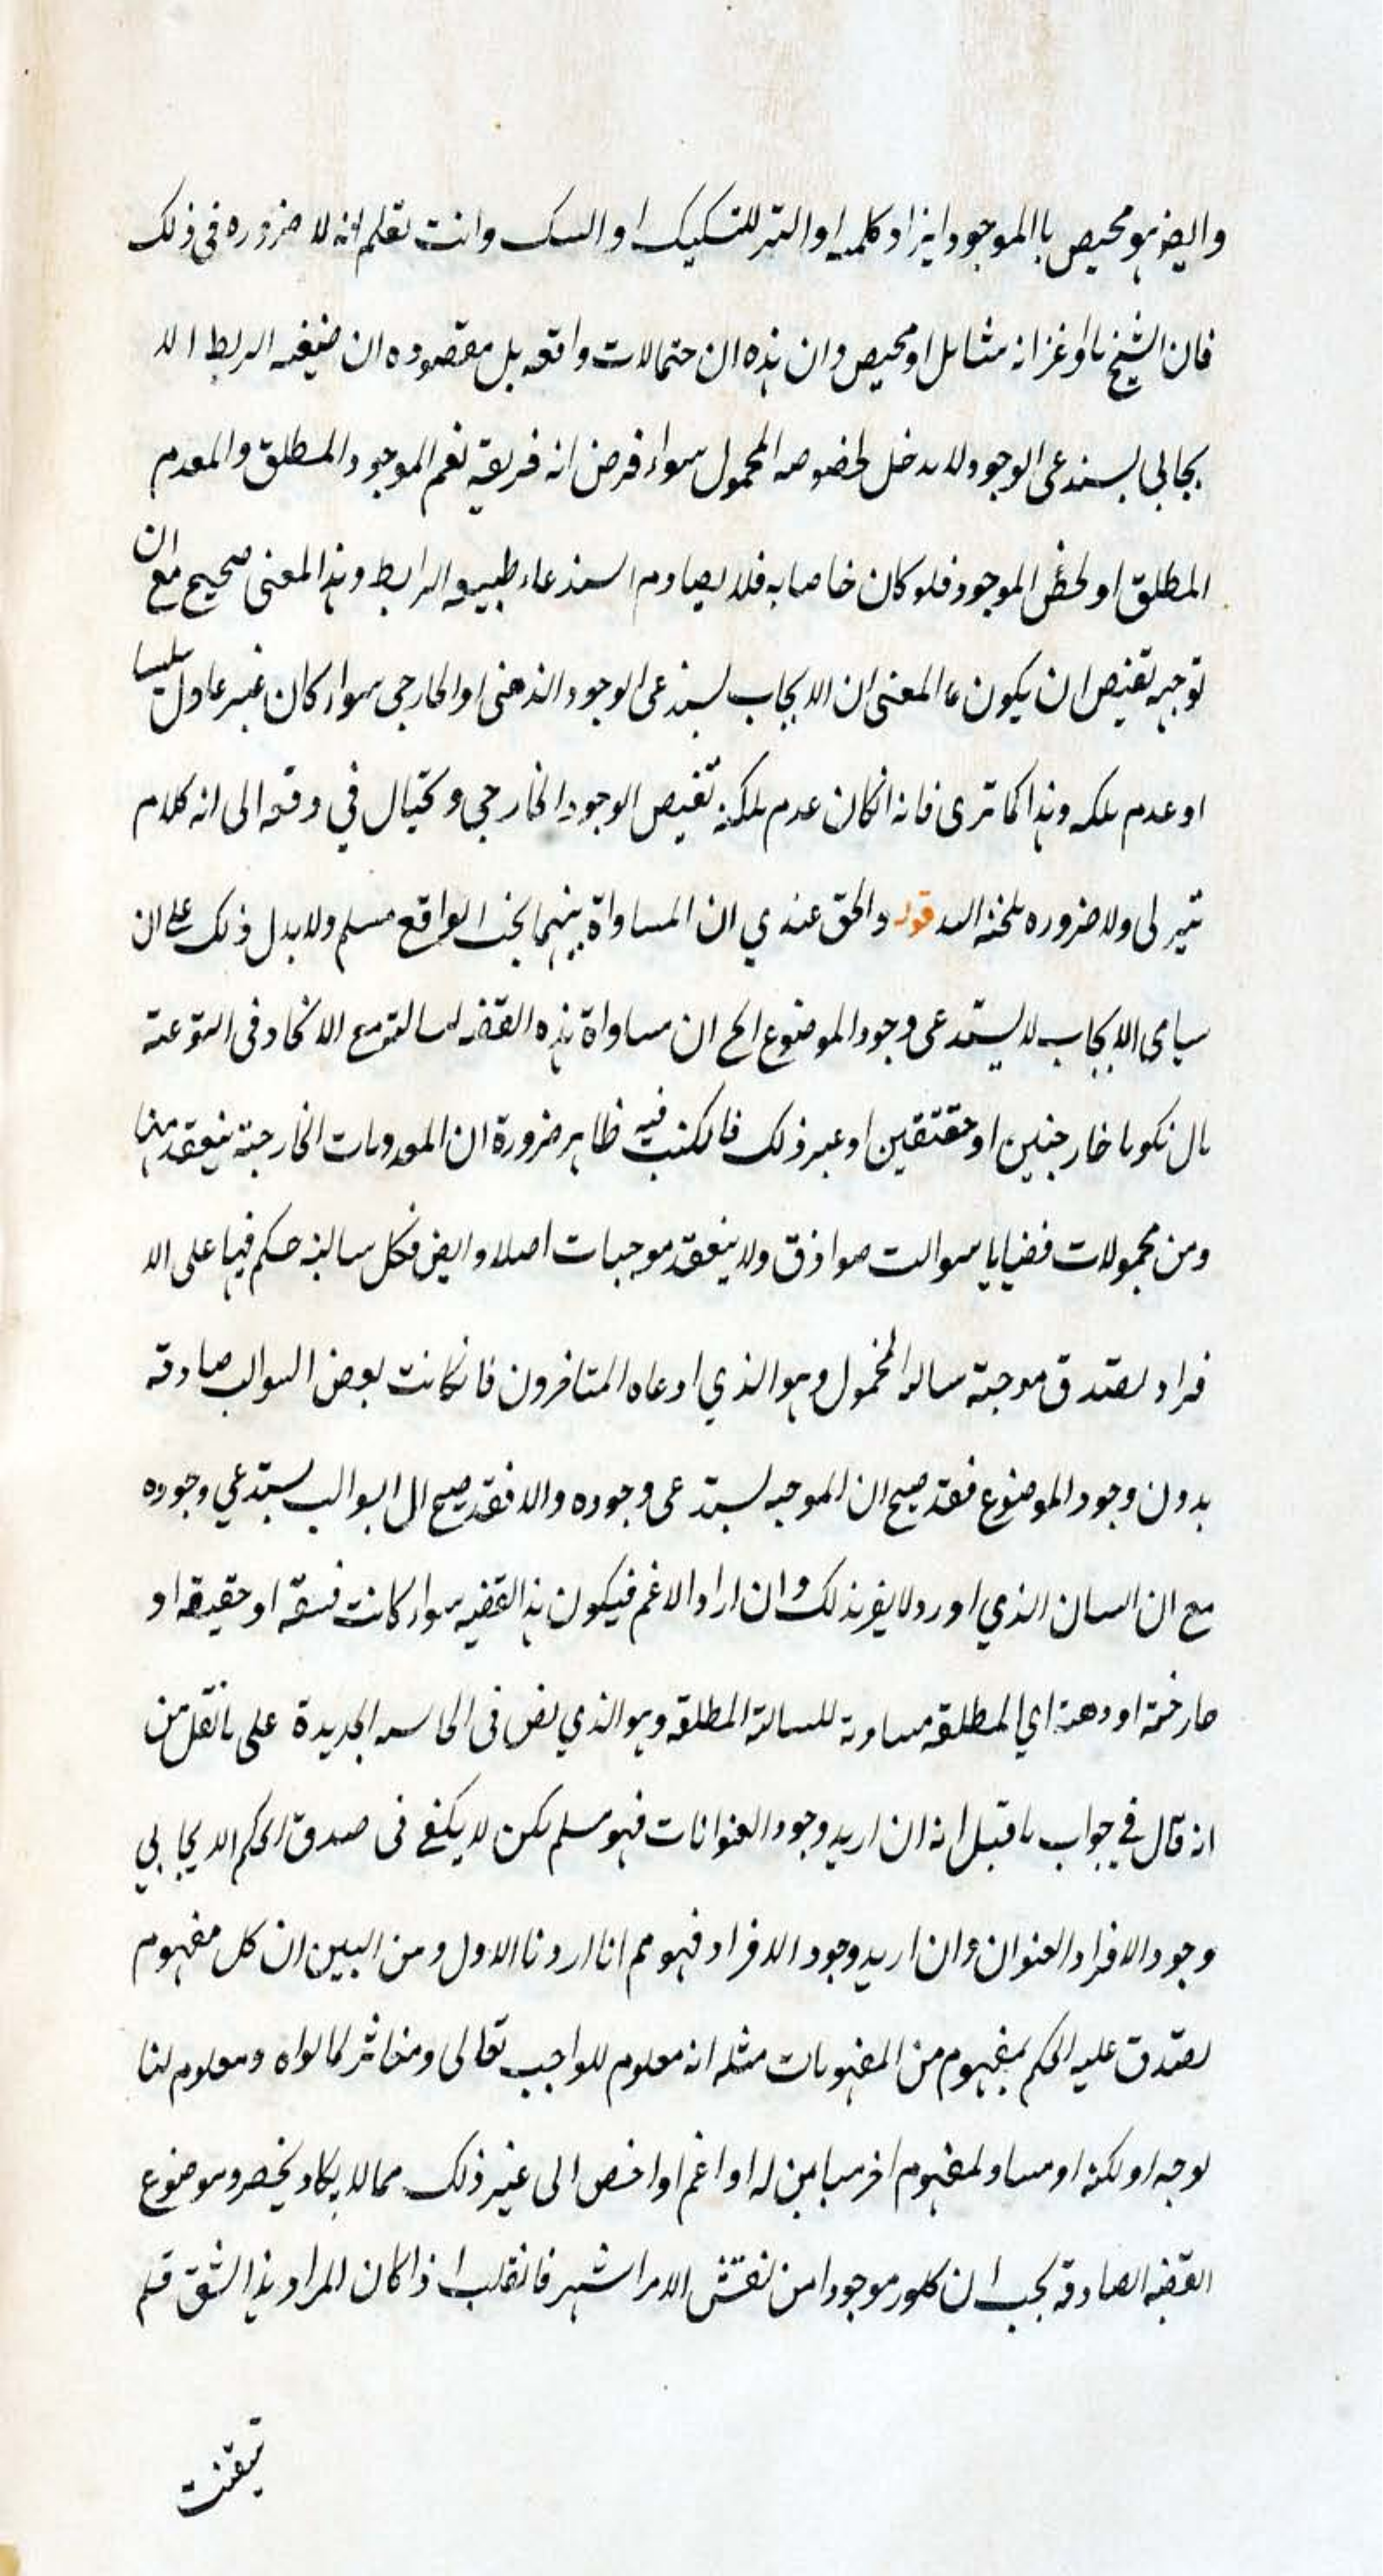 وايضه هو محيص باالموجود ايزاد كلمه او التبر للتسكيك او السك وانت تعلم انه لا ضروره فى ذلك
فان الشيخ ما وغزانه مثامل او محيص وان هذه ان حتمالات واقعه بل مقصوده ان ضيغه الربط الا
يجابى يسندعى الوجود لا بدخل لخصوصه المحمول سواء فرض انه فريقه نغم الموجود المطلق والمعدم
المطلق او لخض الموجود فلو كان خاصا به فلا يصادم اسندعاء طبيعه الرابط وهذا لمعنى صحيح مع ان
توجيه تقيص ان يكون عا المعنى ان الايجاب يسندعى الوجود الذهنى او الخارجى سواء كان غير عادل سلبا
او عدم ملكه وهذا كما ترى فانه انكان عدم ملكه تقيص الوجود الخارجي وكتيال في وقته الى انه كلام
تير لى ولا ضروره ملخنه اسه قوله والحق عندي ان المساواة بينهما بحب الواقع مسلم ولا بدل ذلك على ان
سباى الايجاب لا يستدعى وجود الموضوع الح ان مساواة هذه القضه لسالته مع الاتحاد فى النوعته
بال نكونا خارجنين او حقتقين او عير ذلك فالكنب فيه ظاهر ضرورة ان المعدومات الخارجته ينعقد منها
ومن محمولات قضايا سوالت صواذق ولا ينعقد موجبات اصلا وايض فكل سالبه حكم فيها على الا
فراد يصدق موجبته سالبه المخمول وهو الذي ادعاه المتافرون فانكانت بعض السوالب صادقه
بدون وجود الموضوع فقد صيح ان الموجبه يستدعى وجوده والا فقد صيح ال السوالب يستدعي وجوده
مع ان السان الذي اورد لا يفرذلك وان اراد الاغم فيكون هذا القضيه سواء كانت فسقه او حقيقه او
حارخمة او دهنه اي المطلقه مساوته للسالته المطلقه وهو الذي نض فى الحاسه الجديدة على ما نقل من
انه قال في جواب ما قبل انه ان اريد وجود العنوانات فهو مسلم لكن لا يكفى فى صدق الحكم الايجابي
وجود الافراد العنوان وان اريد وجود الافراد فهو مم انا اردنا الاول ومن البين ان كل مفهوم
يصدق عليه الحكم بمفهوم من المفهومات مثله انه معلوم للواجب تعالى ومغاثر لما لواه ومعلوم لنا
لوجه او لكنه او مساو لمفهوم اخر مباين له او اغم او اخص الى غير ذلك مما لا يكاد يخصر وموضوع
القضه الصادقه يجب ان كلور موجودا من نفش الامر اشهر فانقلب اذا كان المراد هذا الشق قلم
تيقنت